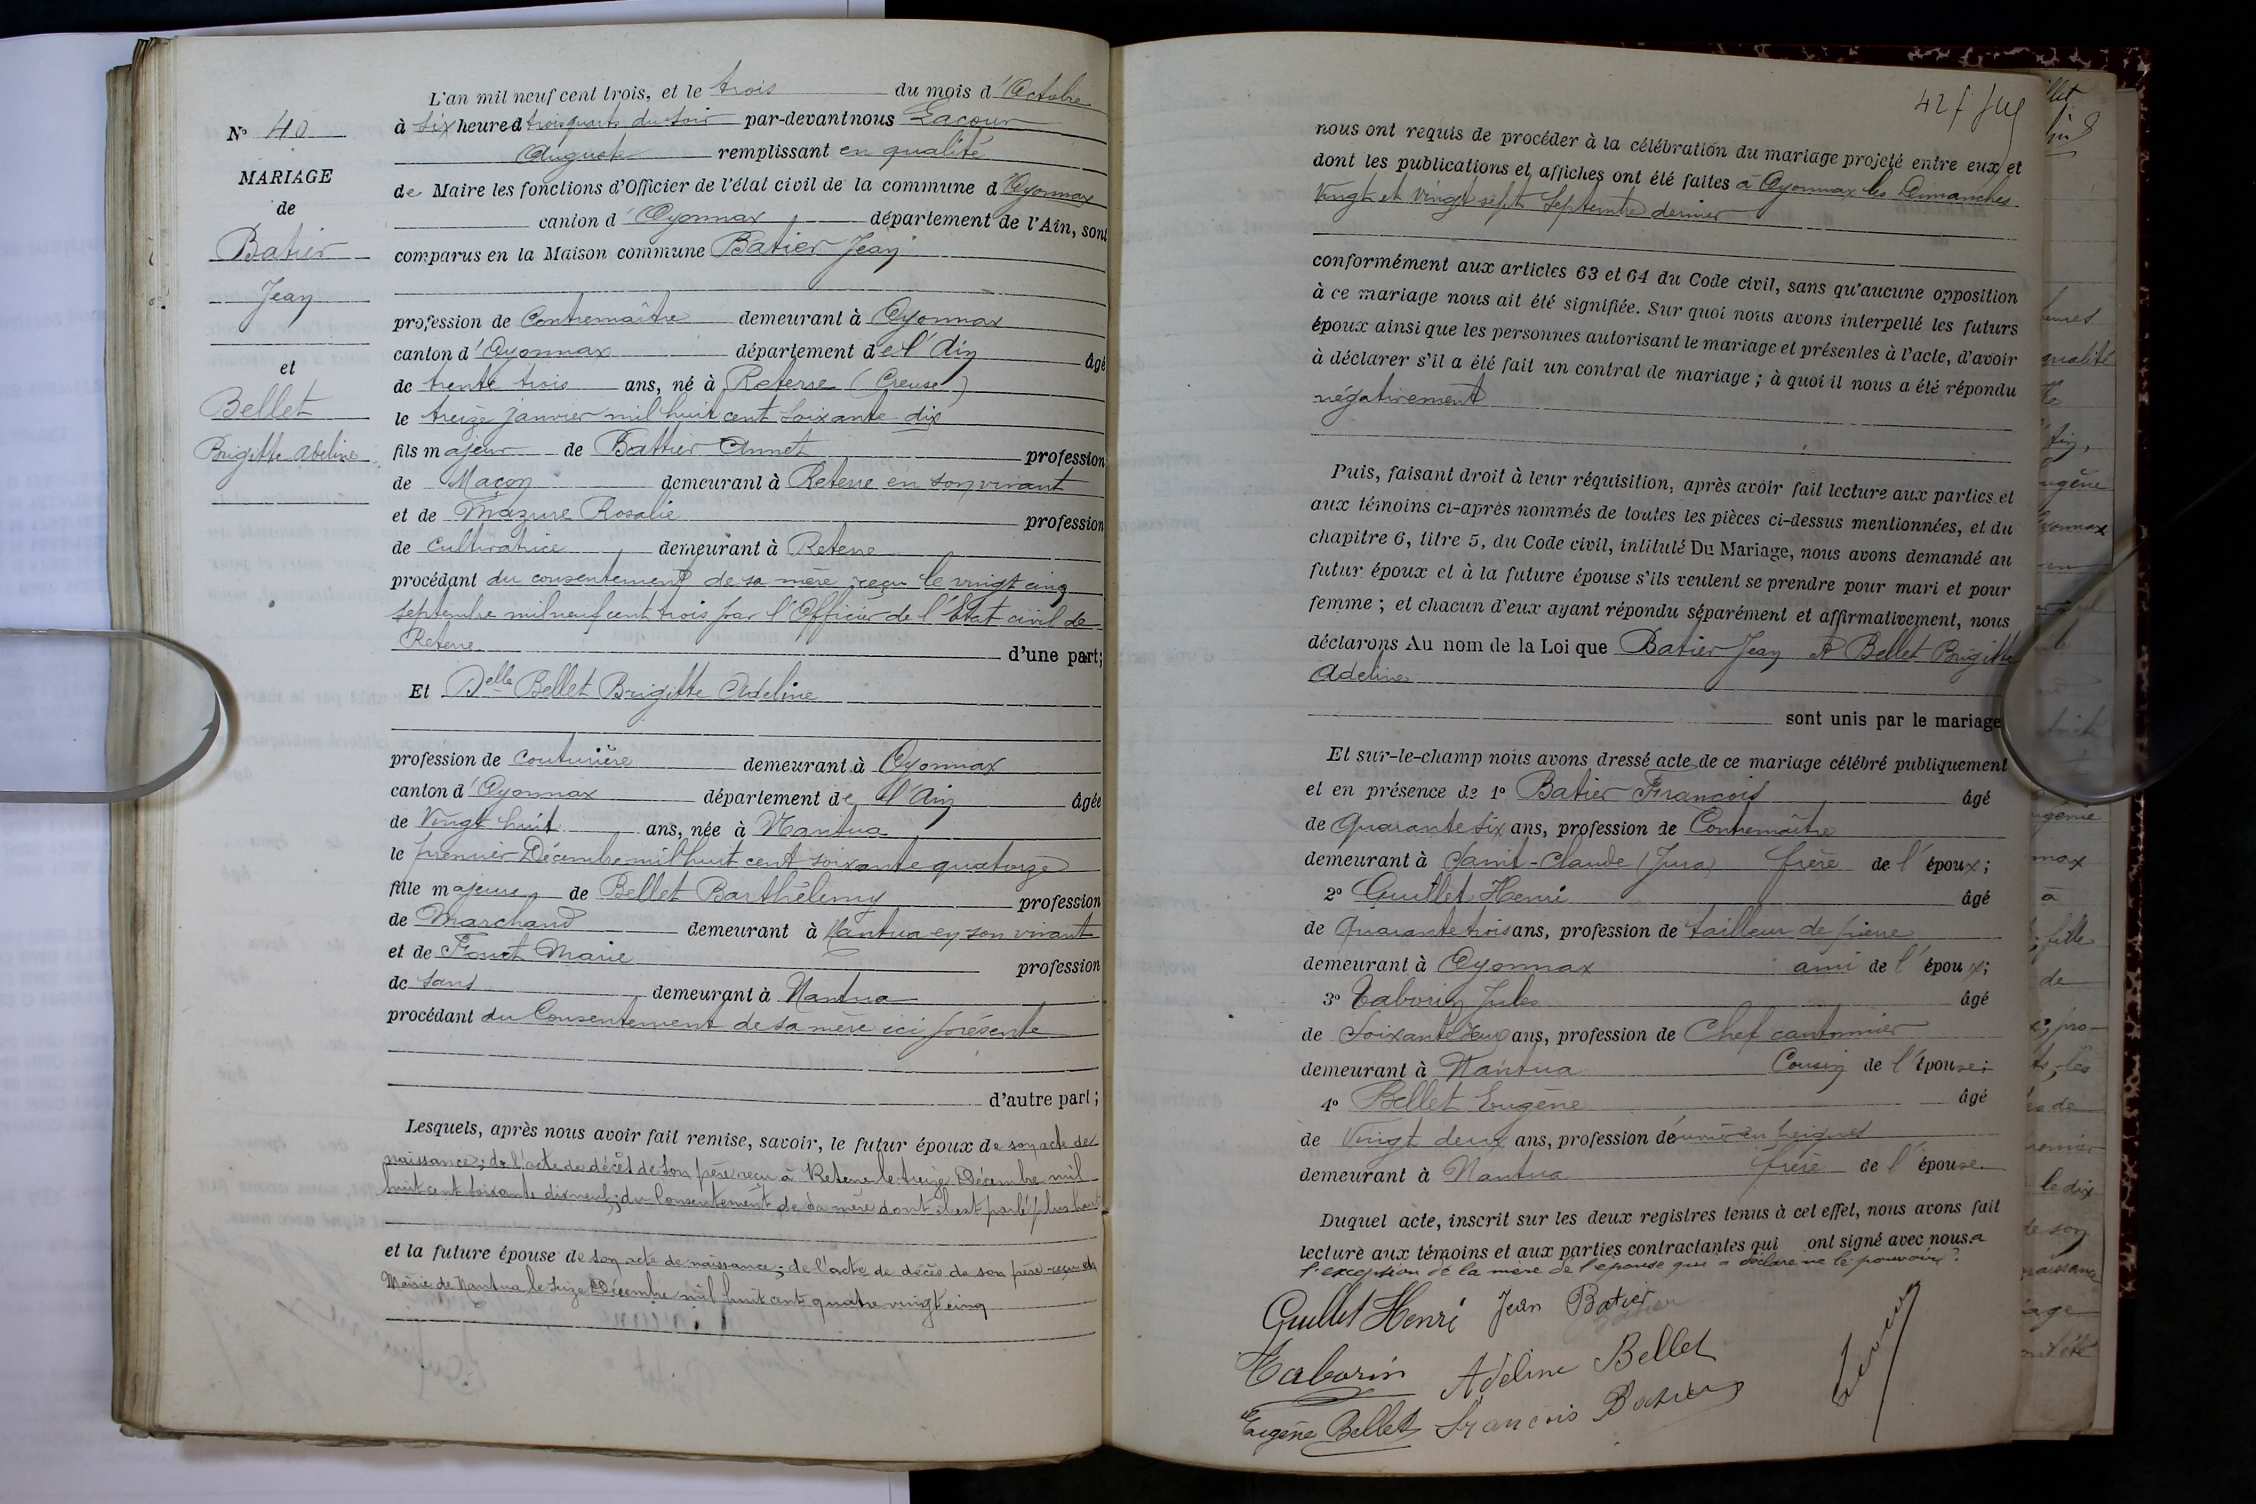 N° 40
MARIAGE
de
Batier
Jean
et
Bellet
Brigitte Adeline
L'an mil neuf cent trois, et le trois du mois d'Octobre
à six heure d trois quarts du soir par-devant nous Lacour
Auguste remplissant en qualité
de Maire les fonctions d'Officier de l'état civil de la commune d'Oyonnax
canton d'Oyonnax département de l'Ain, sont
comparus en la Maison commune Batier Jean
profession de Contremaître demeurant à Oyonnax
canton d'Oyonnax département de l'Ain âgé
de trente trois ans, né à Reterre (Creuse)
le treize janvier mil huit cent soixante dix
fils majeur de Battier Annet profession
de Maçon demeurant à Reterre en son vivant
et de Mazure Rosalie profession
de Cultivatrice demeurant à Reterre
procédant du consentement de sa mère reçu le vingt cinq
septembre mil neuf cent trois par l'Officier de l'Etat civil de
Reterre d'une part;
Et Delle Bellet Brigitte Adeline
profession de couturière demeurant à Oyonnax
canton d'Oyonnax département de l'Ain âgée
de Vingt huit ans, née à Nantua
le premier Décembre mil huit cent soixante quatorze
fille majeure de Bellet Barthélemy profession
de Marchand demeurant à Nantua en son vivant
et de Marie profession
de sans demeurant à Nantua
procédant du Consentement de sa mère ici présente
d'autre part;
Lesquels, après nous avoir fait remise, savoir, le futur époux de son acte de
naissance; de l'acte de décès de son père reçu à Reterre le treize Décembre mil
huit cent soixante dix neuf; du Consentement de sa mère dont il est parlé plus haut
et la future épouse de son acte de naissance; de l'acte de décès de son père reçu en
Mairie de Nantua le seize Décembre mil huit cent quatre vingt cinq
nous ont requis de procéder à la célébration du mariage projeté entre eux, et
dont les publications et affiches ont été faites à Oyonnax les Dimanches
Vingt et vingt sept Septembre dernier
conformément aux articles 63 et 64 du Code civil, sans qu'aucune opposition
à ce mariage nous ait été signifiée. Sur quoi nous avons interpellé les futurs
époux ainsi que les personnes autorisant le mariage et présentes à l'acte, d'avoir
à déclarer s'il a été fait un contrat de mariage; à quoi il nous a été répondu
négativement
Puis, faisant droit à leur réquisition, après avoir fait lecture aux parties et
aux témoins ci-après nommés de toutes les pièces ci-dessus mentionnées, et du
chapitre 6, titre 5, du Code civil, intitulé Du Mariage, nous avons demandé au
futur époux et à la future épouse s'ils veulent se prendre pour mari et pour
femme; et chacun d'eux ayant répondu séparément et affirmativement, nous
déclarons Au nom de la Loi que Batier Jean et Bellet Brigitte
Adeline
sont unis par le mariage
Et sur-le-champ nous avons dressé acte de ce mariage célébré publiquement
et en présence de 1° Batier François âgé
de Quarante six ans, profession de Contremaître
demeurant à Saint-Claude (Jura) frère de l'époux;
2° Guillet Henri âgé
de Quarante trois ans, profession de tailleur de pierre
demeurant à Oyonnax ami de l'époux;
3° Taborin Jules âgé
de Soixante deux ans, profession de Chef cantonnier
demeurant à Nantua Cousin de l'épouse;
4° Bellet Eugène âgé
de Vingt deux ans, profession d'ouvrier en peignes
demeurant à Nantua frère de l'épouse.
Duquel acte, inscrit sur les deux registres tenus à cet effet, nous avons fait
lecture aux témoins et aux parties contractantes qui ont signé avec nous à
l'exception de la mère de l'épouse qui a déclaré ne le pouvoir
Guillet Henri Jean Batier
Taborin Adeline Bellet
Eugène Bellet François Batier